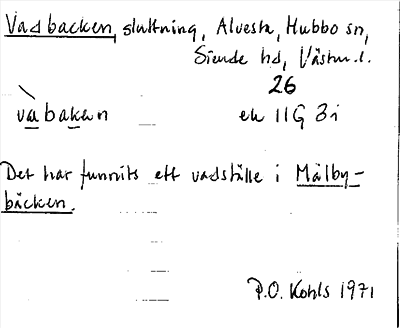 Vadbacken, sluttning, Alvesta, Hubbo sn,
Siende hd, Västm.l.
26
vabaken ek 11G 3i
Det har funnits ett vadställe i Målby-
bäcken.
P.O. Kohls 1971